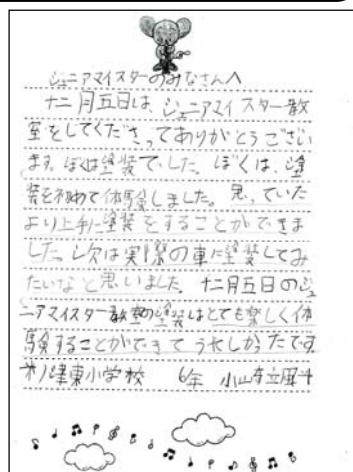 ジュニアマイスターのみなさんへ
十二月五日は、ジュニアマイスター教
室をしてくださってありがとうござい
ます。ぼくは塗装でした。ぼくは、塗
装を初めて体験しました。思っていた
より上手に塗装をすることができま
した。次は実際の車に塗装してみ
たいなと思いました。十二月五日のジュ
ニアマイスター教室の塗装はとても楽しく体
験することができてうれしかったです。
木ノ津東小学校 6年 小山